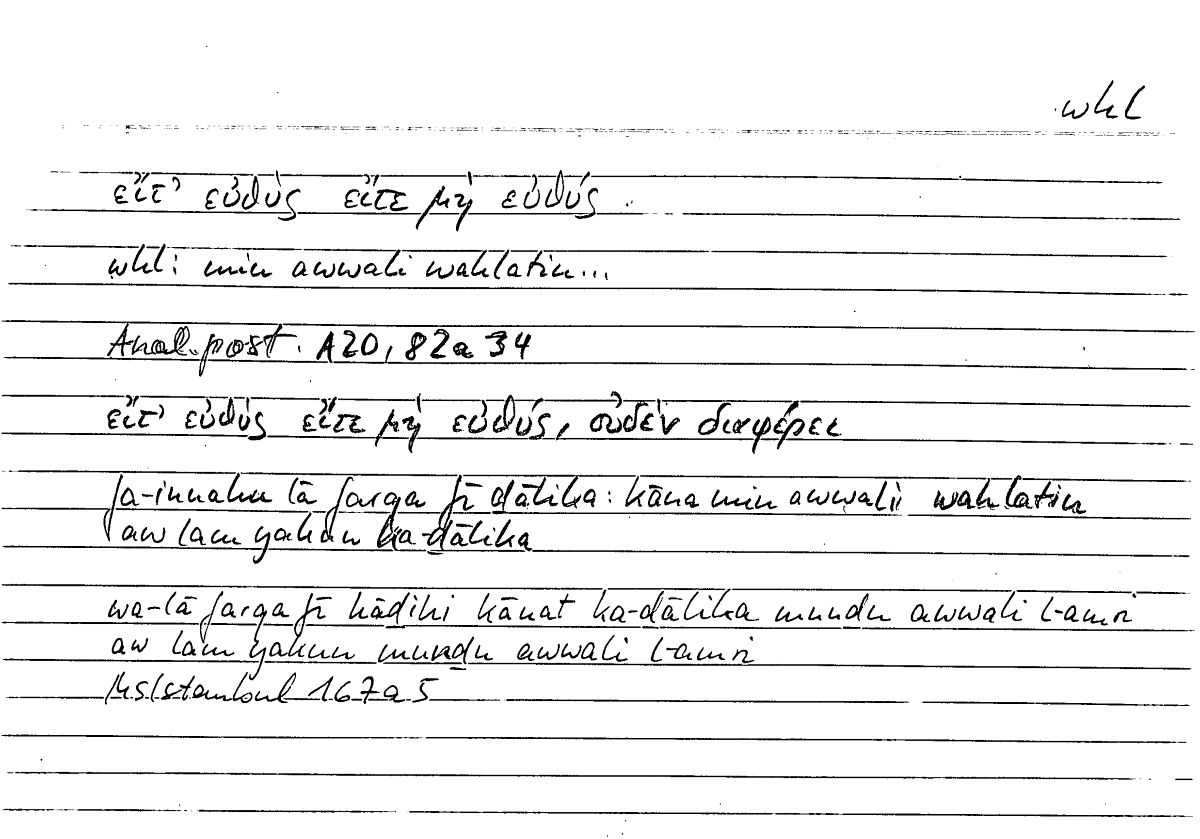 whl
εἴτ' εὐθὺς εἴτε μὴ εὐθύς
whl: min awwali wahlatin...
Anal. post. A20, 82a 34
εἴτ' εὐθὺς εἴτε μὴ εὐθύς, οὐδὲν διαφέρει
fa-innahu lā farqa fī ḏālika: kāna min awwali wahlatin
aw lam yakun ka-ḏālika
wa-lā farqa fī hāḏihi kānat ka-ḏālika munḏu awwali l-amri
aw lam yakun munḏu awwali l-amri
Ms Istanbul 167a5